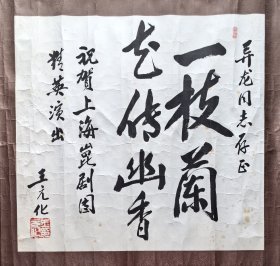 龙同志存正
一枝蘭
花传幽香
祝贺上海崑剧团
精英演出
王元化